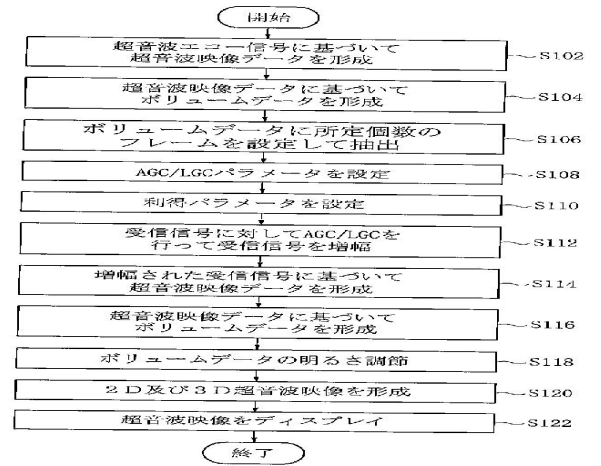 開始
超音波エコー信号に基づいて
超音波映像データを形成
S102
超音波映像データに基づいて
ボリュームデータを形成
S104
ボリュームデータに所定個数の
フレームを設定して抽出
S106
AGC/LGCパラメータを設定
S108
利得パラメータを設定
S110
受信信号に対してAGC/LGCを
行って受信信号を増幅
S112
増幅された受信信号に基づいて
超音波映像データを形成
S114
超音波映像データに基づいて
ボリュームデータを形成
S116
ボリュームデータの明るさ調節
S118
2D及び3D超音波映像を形成
S120
超音波映像をディスプレイ
S122
終了